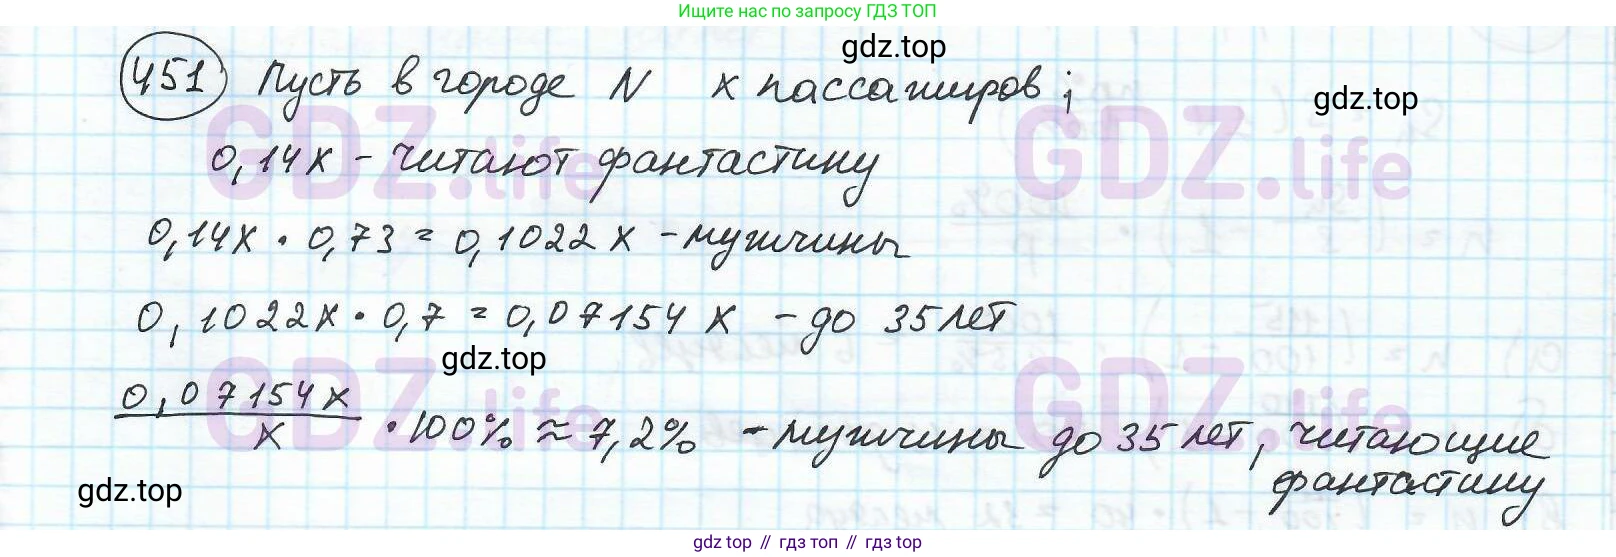 Ищите нас по запросу ГДЗ ТОП
gdz.top
451 Пусть в городе N x пассажиров;
gdz.top
GDZ.life GDZ.life
0,14x - читают фантастику
0,14x · 0,73 = 0,1022x - мужчины
0,1022x · 0,7 = 0,07154x - до 35 лет
gdz.top
GDZ.life GDZ.life
0,07154x / x · 100% ≈ 7,2% - мужчины до 35 лет, читающие
фантастику
gdz.top
gdz top // гдз топ // гдз top